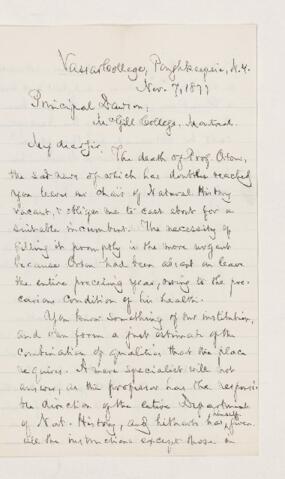 Vassar College, Poughkeepsie, N.Y.
Nov. 7, 1877
Principal Dawson,
McGill College, Montreal.
My dear Sir,
The death of Prof. Orton,
the sad news of which has doubtless reached
you leaves me chair of Natural History
vacant, & obliges me to cast about for a
suitable incumbent. The necessity of
filling it promptly is the more urgent
because Orton had been absent on leave
the entire preceding year, owing to the pre-
carious condition of his health.
You know something of our institution,
and can form a just estimate of the
combination of qualities that the place
requires. A mere specialist will not
answer, as the professor has the responsi-
ble direction of the entire Department
of Nat. History, and hitherto has himself given
all the instructions except those in